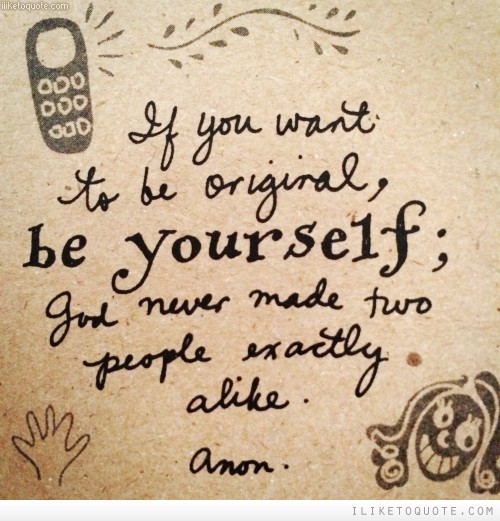 iliketoquote.com
If you want
to be original,
be yourself;
God never made two
people exactly
alike.
anon.
ILIKETOQUOTE.COM